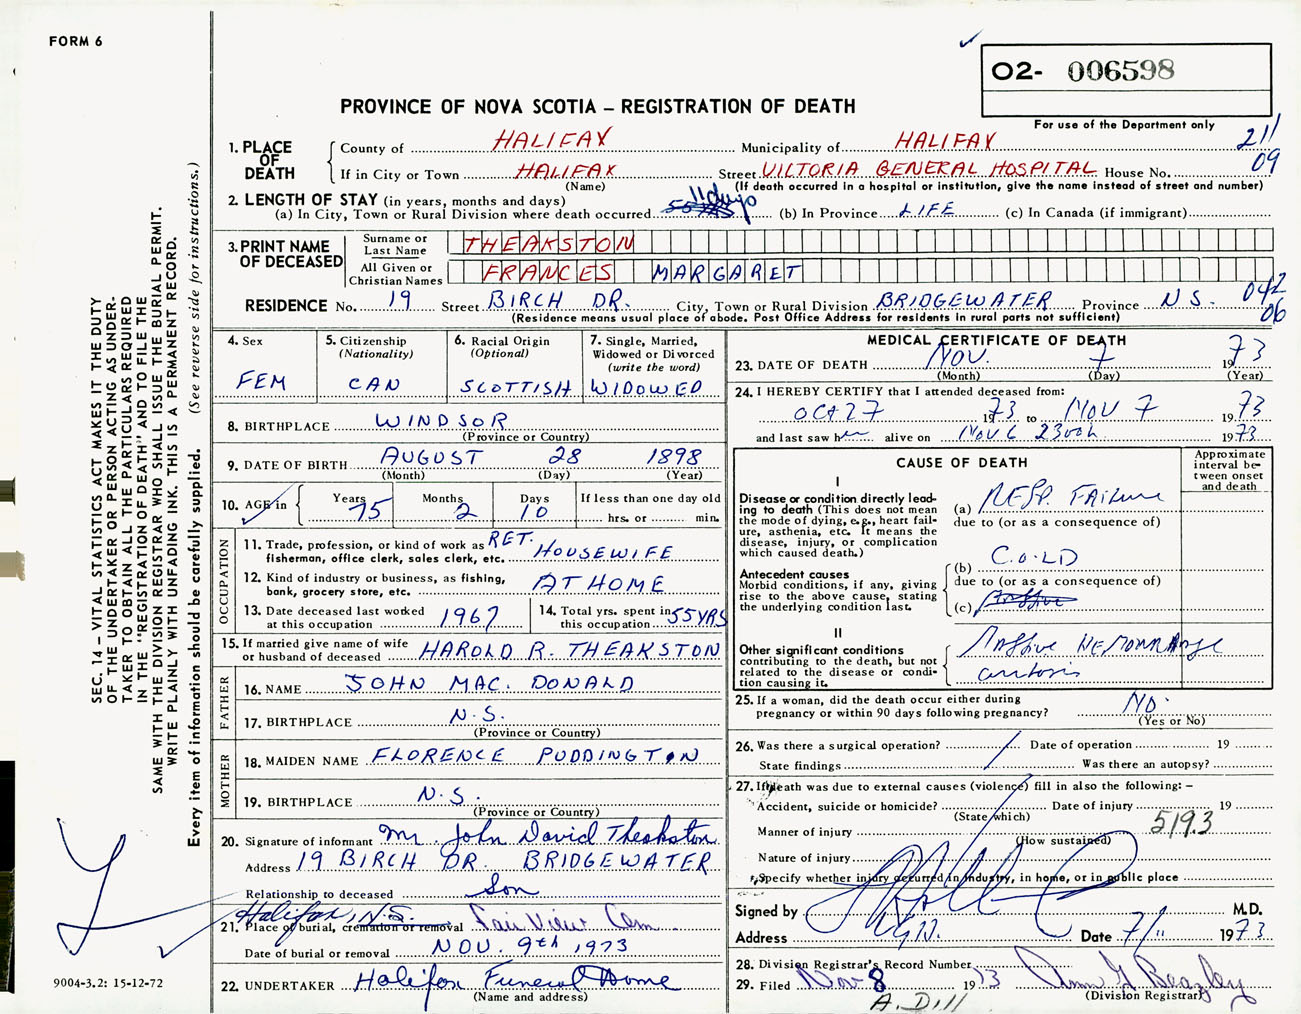 FORM 6
O2- 006598
PROVINCE OF NOVA SCOTIA – REGISTRATION OF DEATH
For use of the Department only
1. PLACE OF DEATH
County of HALIFAX Municipality of HALIFAX 211
If in City or Town HALIFAX Street VICTORIA GENERAL HOSPITAL House No. 09
(Name) (If death occurred in a hospital or institution, give the name instead of street and number)
2. LENGTH OF STAY (in years, months and days)
(a) In City, Town or Rural Division where death occurred 11 days (b) In Province LIFE (c) In Canada (if immigrant)
3. PRINT NAME OF DECEASED
Surname or Last Name THEAKSTON
All Given or Christian Names FRANCES MARGARET
RESIDENCE No. 19 Street BIRCH DR. City, Town or Rural Division BRIDGEWATER Province N.S. 042 06
(Residence means usual place of abode. Post Office Address for residents in rural parts not sufficient)
4. Sex
FEM
5. Citizenship (Nationality)
CAN
6. Racial Origin (Optional)
SCOTTISH
7. Single, Married, Widowed or Divorced (write the word)
WIDOWED
8. BIRTHPLACE WINDSOR
(Province or Country)
9. DATE OF BIRTH AUGUST 28 1898
(Month) (Day) (Year)
10. AGE in Years 75 Months 2 Days 10 If less than one day old
hrs. or min.
OCCUPATION
11. Trade, profession, or kind of work as fisherman, office clerk, sales clerk, etc. RET. HOUSEWIFE
12. Kind of industry or business, as fishing, bank, grocery store, etc. AT HOME
13. Date deceased last worked at this occupation 1967
14. Total yrs. spent in this occupation 55 YRS
15. If married give name of wife or husband of deceased HAROLD R. THEAKSTON
FATHER
16. NAME JOHN MAC. DONALD
17. BIRTHPLACE N.S.
(Province or Country)
MOTHER
18. MAIDEN NAME FLORENCE PUDDINGTON
19. BIRTHPLACE N.S.
(Province or Country)
20. Signature of informant Mr. John David Theakston
Address 19 BIRCH DR. BRIDGEWATER
Relationship to deceased Son
Halifax, N.S.
21. Place of burial, cremation or removal Fair View Cem
Date of burial or removal NOV. 9th 1973
22. UNDERTAKER Halifax Funeral Home
(Name and address)
MEDICAL CERTIFICATE OF DEATH
23. DATE OF DEATH NOV. 7 1973
(Month) (Day) (Year)
24. I HEREBY CERTIFY that I attended deceased from:
OCT 27 1973 to NOV 7 1973
and last saw her alive on NOV 6 2300h 1973
CAUSE OF DEATH
Approximate interval between onset and death
I
Disease or condition directly leading to death (This does not mean the mode of dying, e.g., heart failure, asthenia, etc. It means the disease, injury, or complication which caused death.)
(a) RESP. FAILURE
due to (or as a consequence of)
Antecedent causes
Morbid conditions, if any, giving rise to the above cause, stating the underlying condition last.
(b) C.O.L.D
due to (or as a consequence of)
(c)
II
Other significant conditions contributing to the death, but not related to the disease or condition causing it.
Massive HEMORRHAGE
25. If a woman, did the death occur either during pregnancy or within 90 days following pregnancy? NO.
(Yes or No)
26. Was there a surgical operation? Date of operation 19
State findings Was there an autopsy?
27. If death was due to external causes (violence) fill in also the following: –
Accident, suicide or homicide? Date of injury 19
(State which)
Manner of injury 519.3
(How sustained)
Nature of injury
Specify whether injury occurred in industry, in home, or in public place
Signed by M.D.
Address V.G.H. Date 7/11 1973
28. Division Registrar's Record Number
29. Filed Nov 8 1973 Ann G Beazley
(Division Registrar)
A. Dill
SEC. 14 – VITAL STATISTICS ACT MAKES IT THE DUTY
OF THE UNDERTAKER OR PERSON ACTING AS UNDER-
TAKER TO OBTAIN ALL THE PARTICULARS REQUIRED
IN THE "REGISTRATION OF DEATH" AND TO FILE THE
SAME WITH THE DIVISION REGISTRAR WHO SHALL ISSUE THE BURIAL PERMIT.
WRITE PLAINLY WITH UNFADING INK. THIS IS A PERMANENT RECORD.
Every item of information should be carefully supplied. (See reverse side for instructions.)
9004-3.2: 15-12-72